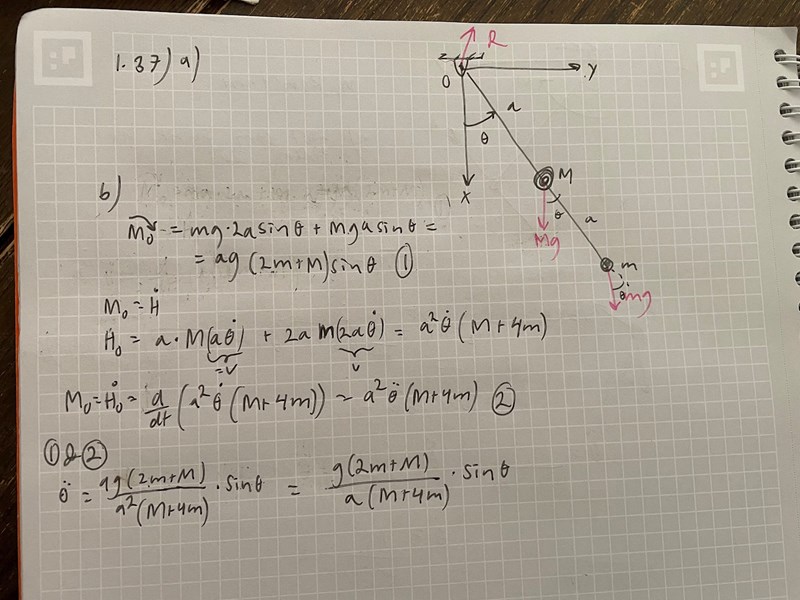 1.37) a)
R
O
Y
a
θ
X
M
θ
a
Mg
m
θ
mg
b)
M₀ = mg·2a sinθ + Mga sinθ =
= ag (2m+M) sinθ ①
M₀ = Ḣ
H₀ = a·M(aθ̇) + 2a m(2aθ̇) = a²θ̇ (M+4m)
=v v
M₀ = Ḣ₀ = d/dt (a²θ̇ (M+4m)) = a²θ̈ (M+4m) ②
① & ②
θ̈ = ag(2m+M)/a²(M+4m) · sinθ = g(2m+M)/a(M+4m) · sinθ